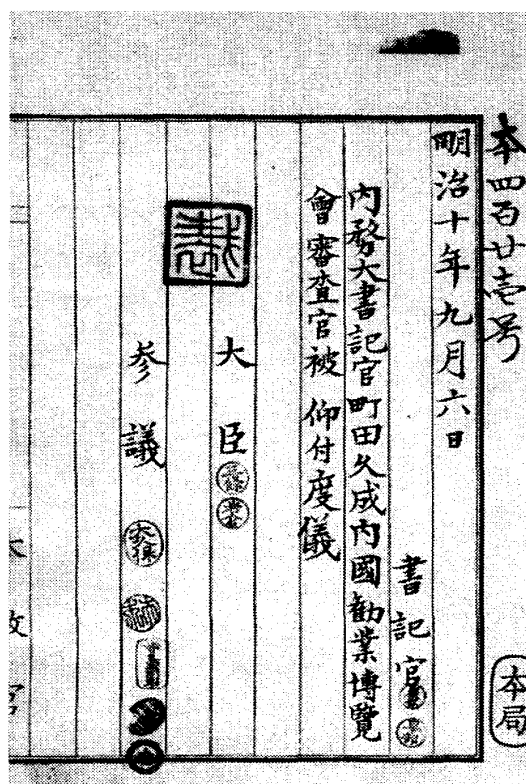 本四百廿壱号
本局
明治十年九月六日
書記官
内務大書記官町田久成内國勧業博覧
會審査官被 仰付度儀
大臣
参議